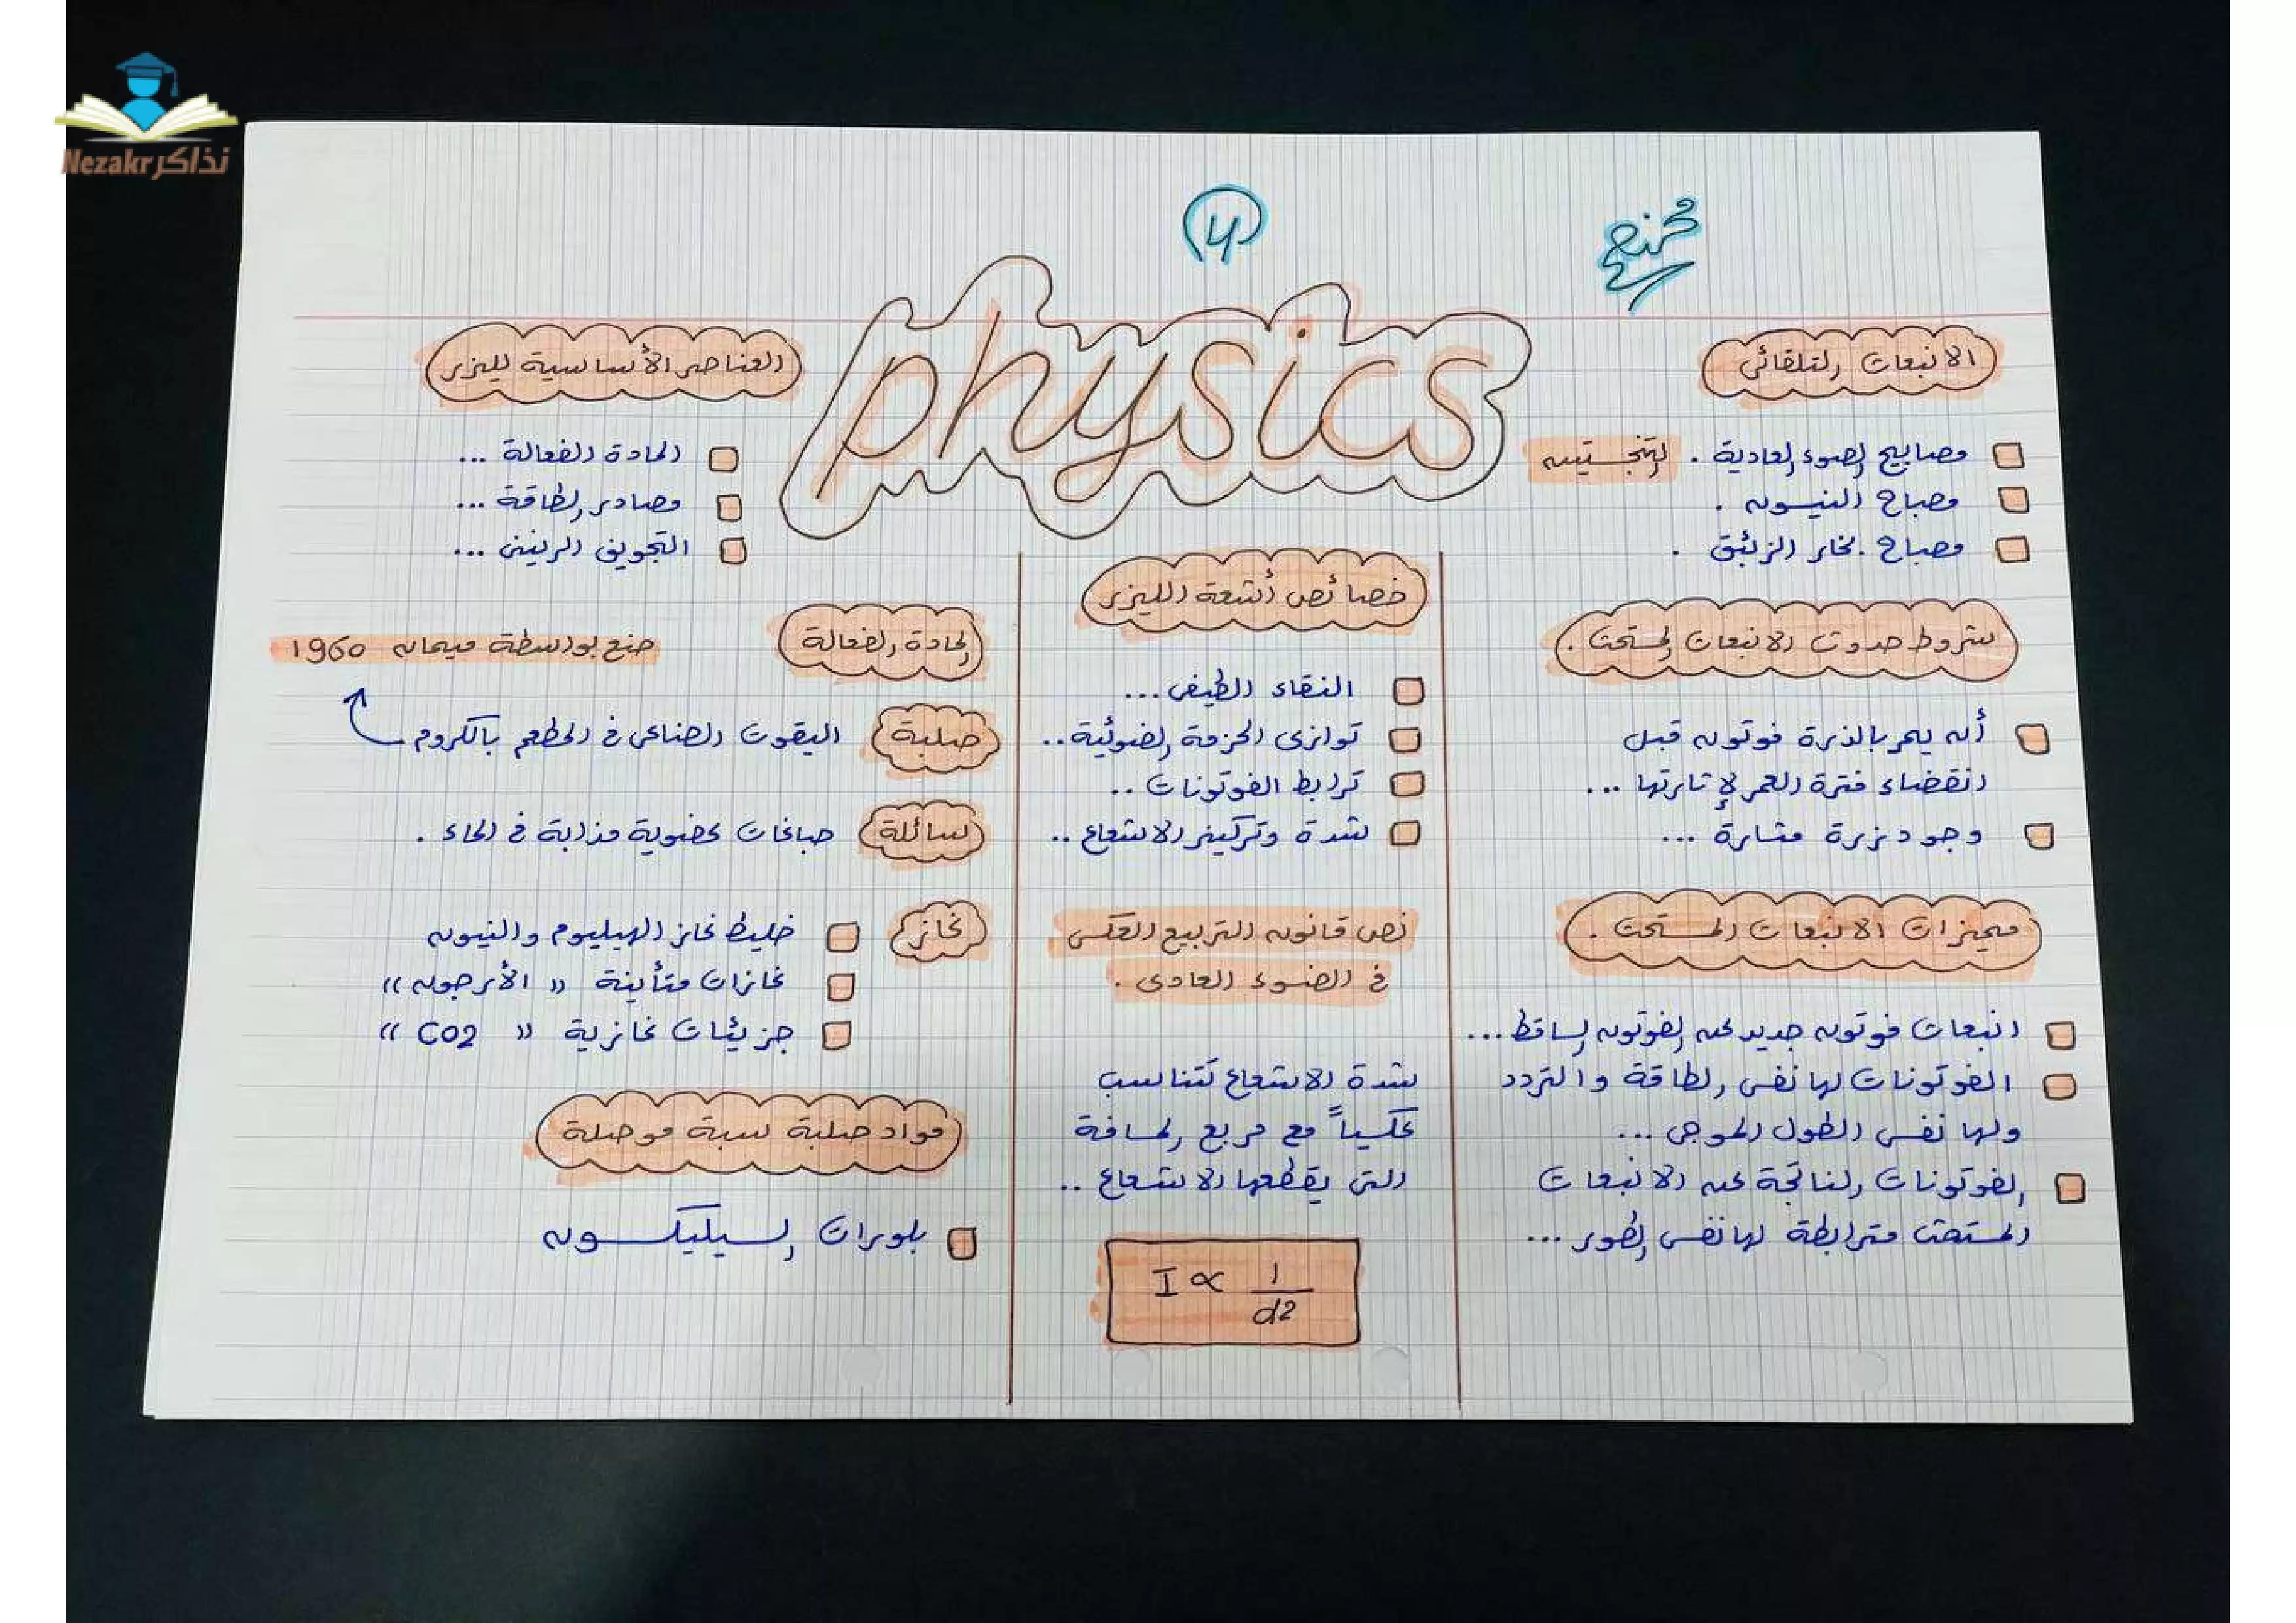 نذاكر Nezakr
physics
الانبعاث التلقائي
مصابيح الضوء العادية . التنجستين
مصباح النيون .
مصباح بخار الزئبق .
شروط حدوث الانبعاث المستحث .
أن يمر بالذرة فوتون قبل
انقضاء فترة العمر لإثارتها ...
وجود ذرة مثارة ...
مميزات الانبعاث المستحث .
انبعاث فوتون جديد عن الفوتون الساقط ...
الفوتونات لها نفس الطاقة والتردد
ولها نفس الطول الموجي ...
الفوتونات الناتجة عن الانبعاث
المستحث مترابطة لها نفس الطور ...
خصائص أشعة الليزر
النقاء الطيفي ...
توازي الحزمة الضوئية ..
ترابط الفوتونات ..
شدة وتركيز الاشعاع ..
نص قانون التربيع العكسي
في الضوء العادي .
شدة الاشعاع تتناسب
عكسياً مع مربع المسافة
التي يقطعها الاشعاع ..
I ∝ 1/d2
العناصر الأساسية لليزر
المادة الفعالة ...
مصادر الطاقة ...
التجويف الرنيني ...
المادة الفعالة
صنع بواسطة ميمان 1960
صلبة اليقوت الصناعي في المطعم بالكروم
سائلة صباغات عضوية مذابة في الماء .
غاز خليط غاز الهيليوم والنيون
غازات متأينة " الأرجون "
جزيئات غازية " CO2 "
مواد صلبة شبة موصلة
بلورات السيليكون